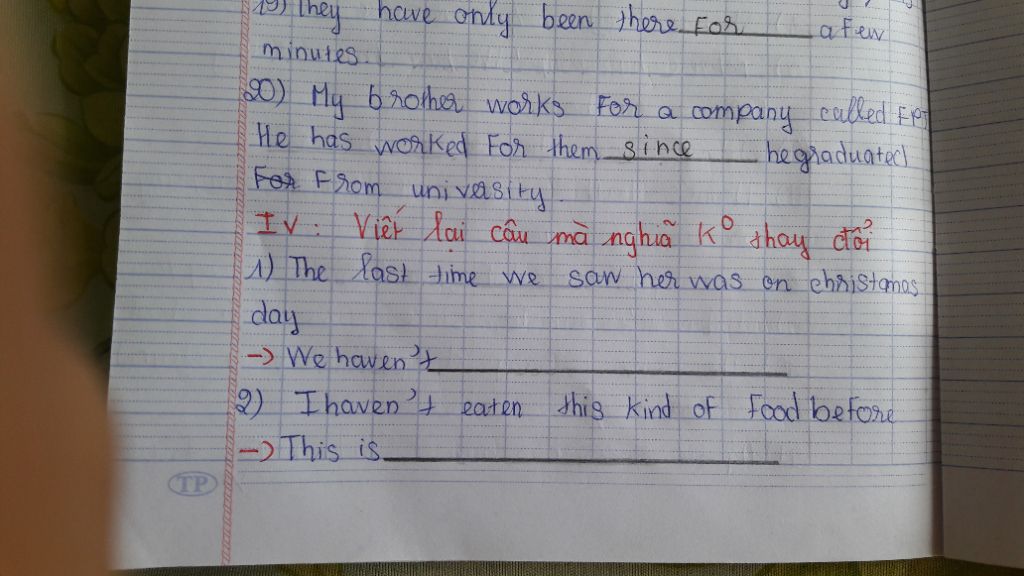 19) They have only been there for a few
minutes.
20) My brother works For a company called FPT
He has worked For them since he graduated
For From university.
IV: Viết lại câu mà nghiã Kº thay đổi
1) The last time we saw her was on christmas
day
-> We haven't
2) I haven't eaten this kind of food before
-> This is
TP